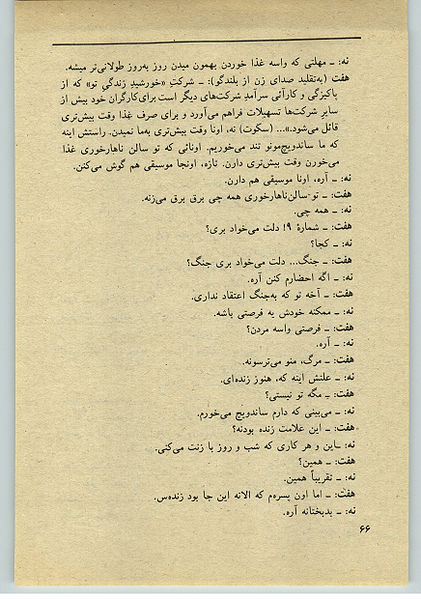 نه: ـ مهلتی که واسه غذا خوردن بهمون میدن روز به‌روز طولانی‌تر میشه.
هفت (به‌تقلید صدای زن از بلندگو): ـ شرکتِ «خورشیدِ زندگیِ تو» که از
پاکیزگی و کارآئی سرآمدِ شرکت‌های دیگر است برای‌کارگران خود بیش از
سایر شرکت‌ها تسهیلات فراهم می‌آورد و برای صرف غذا وقت بیش‌تری
قائل می‌شود.»... (سکوت) نه، اونا وقت بیش‌تری به‌ما نمیدن. راستش اینه
که ما ساندویچ‌مونو تند می‌خوریم. اونائی که تو سالن ناهارخوری غذا
می‌خورن وقت بیش‌تری دارن. تازه، اونجا موسیقی هم گوش می‌کنن.
نه: ـ آره، اونا موسیقی هم دارن.
هفت: ـ تو سالن‌ناهارخوری همه چی برق برق می‌زنه.
نه: ـ همه چی.
هفت: ـ شمارهٔ ۹! دلت می‌خواد بری؟
نه: ـ کجا؟
هفت: ـ جنگ... دلت می‌خواد بری جنگ؟
نه: ـ اگه احضارم کنن آره.
هفت: ـ آخه تو که به‌جنگ اعتقاد نداری.
نه: ـ ممکنه خودش یه فرصتی باشه.
هفت: ـ فرصتی واسه مردن؟
نه: ـ آره.
هفت: ـ مرگ، منو می‌ترسونه.
نه: ـ علتش اینه که، هنوز زنده‌ای.
هفت: ـ مگه تو نیستی؟
نه: ـ می‌بینی که دارم ساندویچ می‌خورم.
هفت: ـ این علامت زنده بودنه؟
نه: ـ این و هر کاری که شب و روز با زنت می‌کنی.
هفت: ـ همین؟
نه: ـ تقریباً همین.
هفت: ـ اما اون پسره‌م که الانه این جا بود زنده‌س.
نه: ـ بدبختانه آره.
۶۶